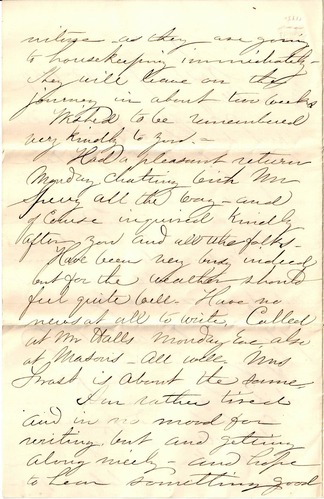 niture as they are going
to housekeeping immediately -
They will leave on the
journey in about two weeks
Wished to be remembered
very kindly to you. -
Had a pleasant return
Monday chatting with Mr
Spery all the way - and
of course inquired kindly
after you and all the folks -
Have been very busy indeed
but for the weather should
feel quite well. Have no
news at all to write, Called
at Mr Halls Monday Eve also
at Masons - All well. Mrs
is about the same
Am rather tired
and in no mood for
writing but and getting
along nicely - and hope
to hear something good